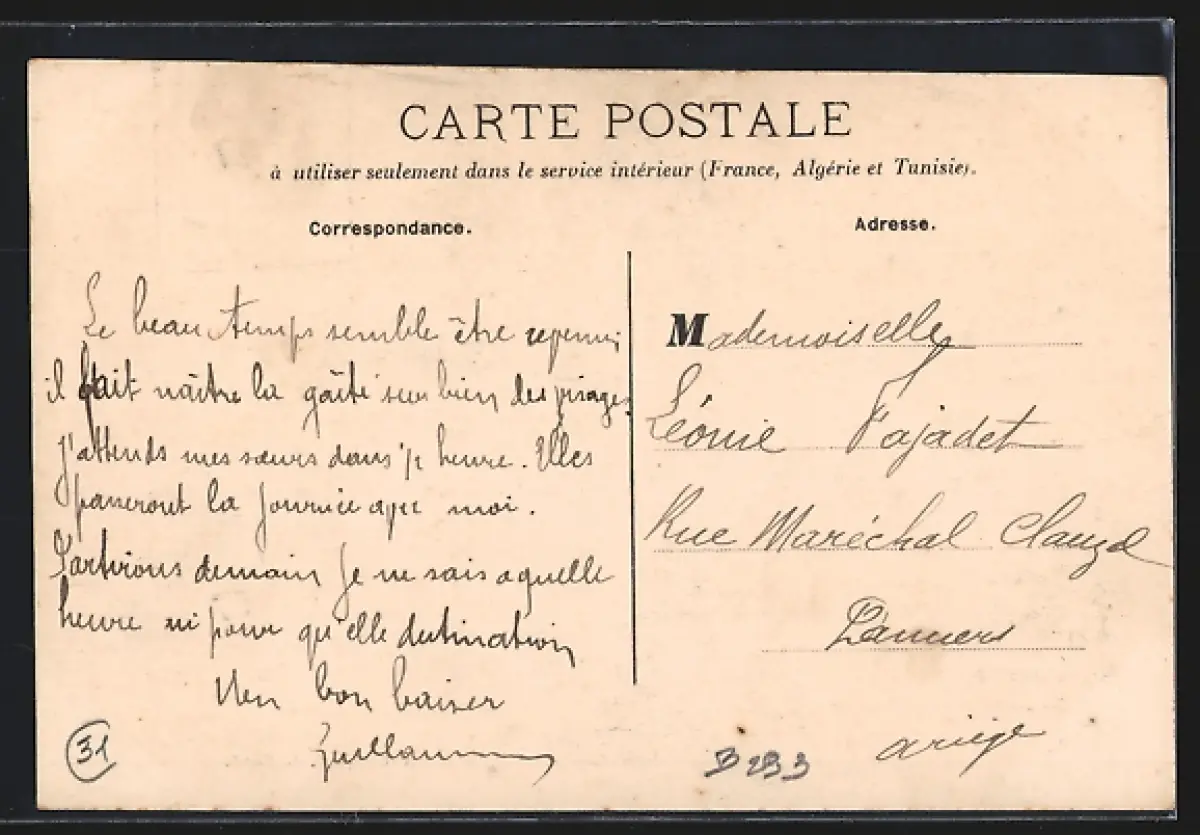 CARTE POSTALE
à utiliser seulement dans le service intérieur (France, Algérie et Tunisie).
Correspondance.
Adresse.
Le beau temps semble être revenu
il fait naître la gaîté sur bien des visages.
J'attends mes sœurs dans ½ heure. Elles
passeront la journée avec moi.
Partirons demain je ne sais a quelle
heure ni pour qu'elle destination
Un bon baiser
Guillaume
31
Mademoiselle
Léonie Fajadet
Rue Maréchal Clauzel
Pamiers
ariège